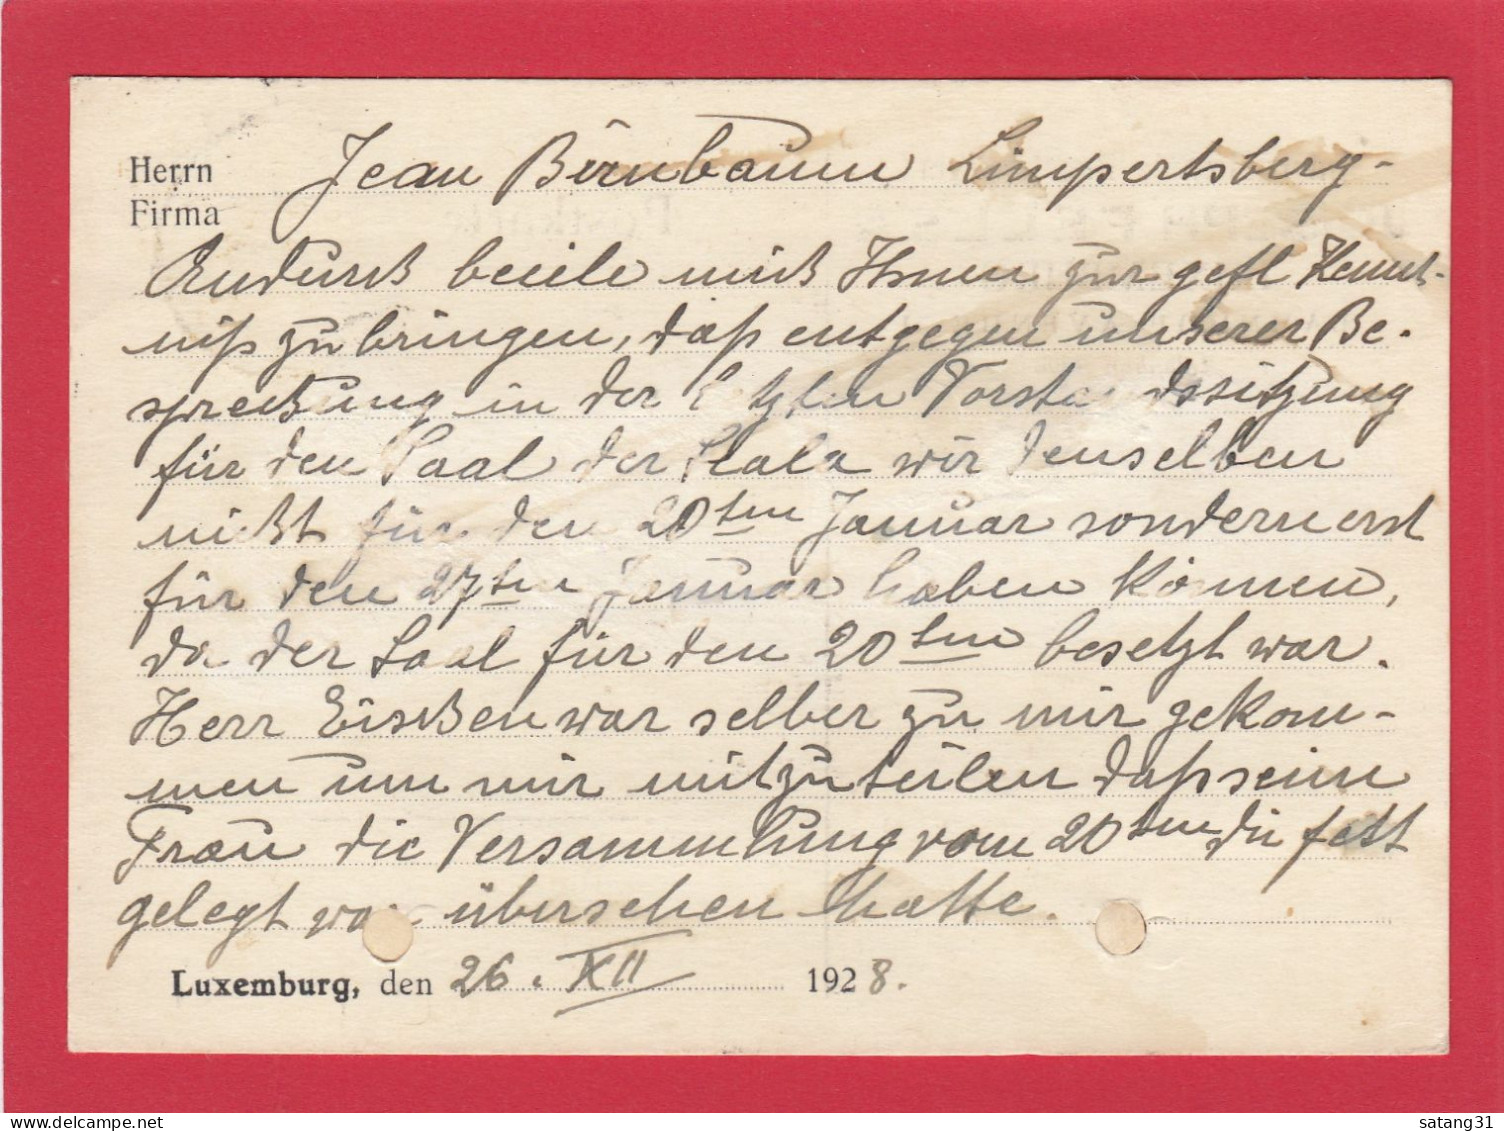 Herrn Jean Birnbaum Limpertsberg-
Firma
Andurch beeile mich Ihnen zur gefl Kennt-
niß zu bringen, daß entgegen unserer Be-
sprechung in der letzten Vorstandssitzung
für den Saal der Scala wir denselben
nicht für den 20ten Januar sondern erst
für den 27ten Januar haben können,
da der Saal für den 20ten besetzt war.
Herr Eischen war selber zu mir gekom-
men um mir mitzuteilen daß seine
Frau die Versammlung vom 20ten die fest
gelegt war übersehen hatte.
Luxemburg, den 26. XII 1928.
satang31